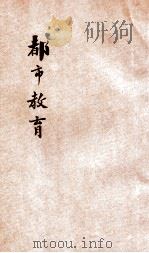 研狗
都市教育
mtoou.info